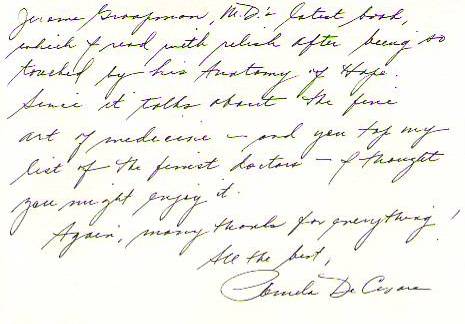 Jerome Groopman, M.D.'s latest book,
which I read with relish after being so
touched by his Anatomy of Hope.
Since it talks about the fine
art of medicine - and you top my
list of the finest doctors - I thought
you might enjoy it.
Again, many thanks for everything!
All the best,
Pamela De Cesare